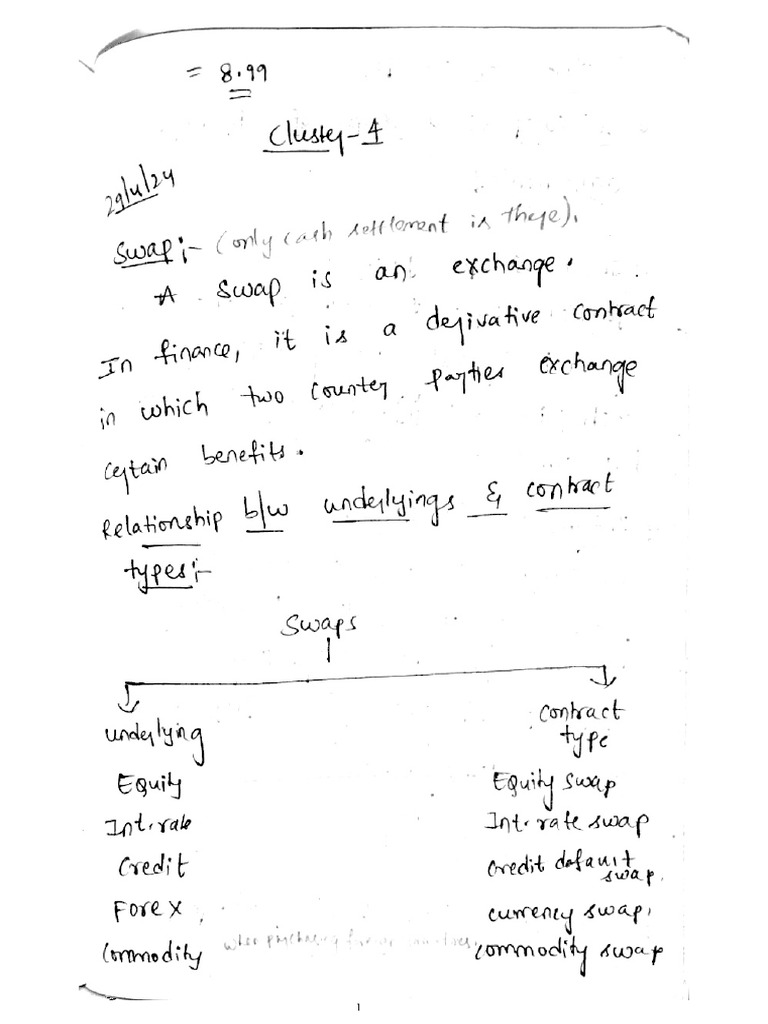 = 8.99
Cluster-4
29/4/24
Swap:- (only cash settlement is there).
A swap is an exchange.
In finance, it is a derivative contract
in which two counter parties exchange
certain benefits.
Relationship b/w underlyings & contract
types:-
Swaps
underlying
contract
type
Equity
Equity swap
Int.rate
Int.rate swap
Credit
credit default
swap.
Forex
currency swap.
Commodity
when
commodity swap
1